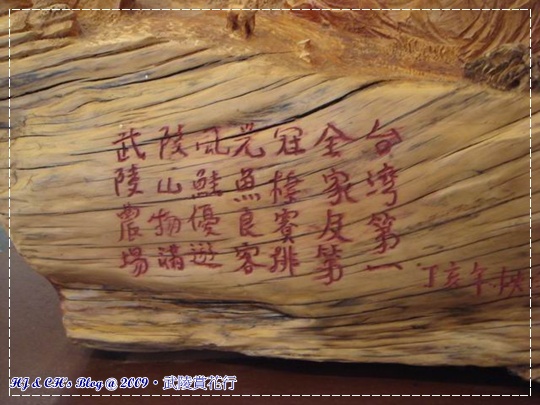 台灣第一
全家及第
冠 賽排
魚良客
風鮭優遊
陵山物
武陵農場
丁亥年秋
HJ & CH's Blog @ 2009・武陵賞花行